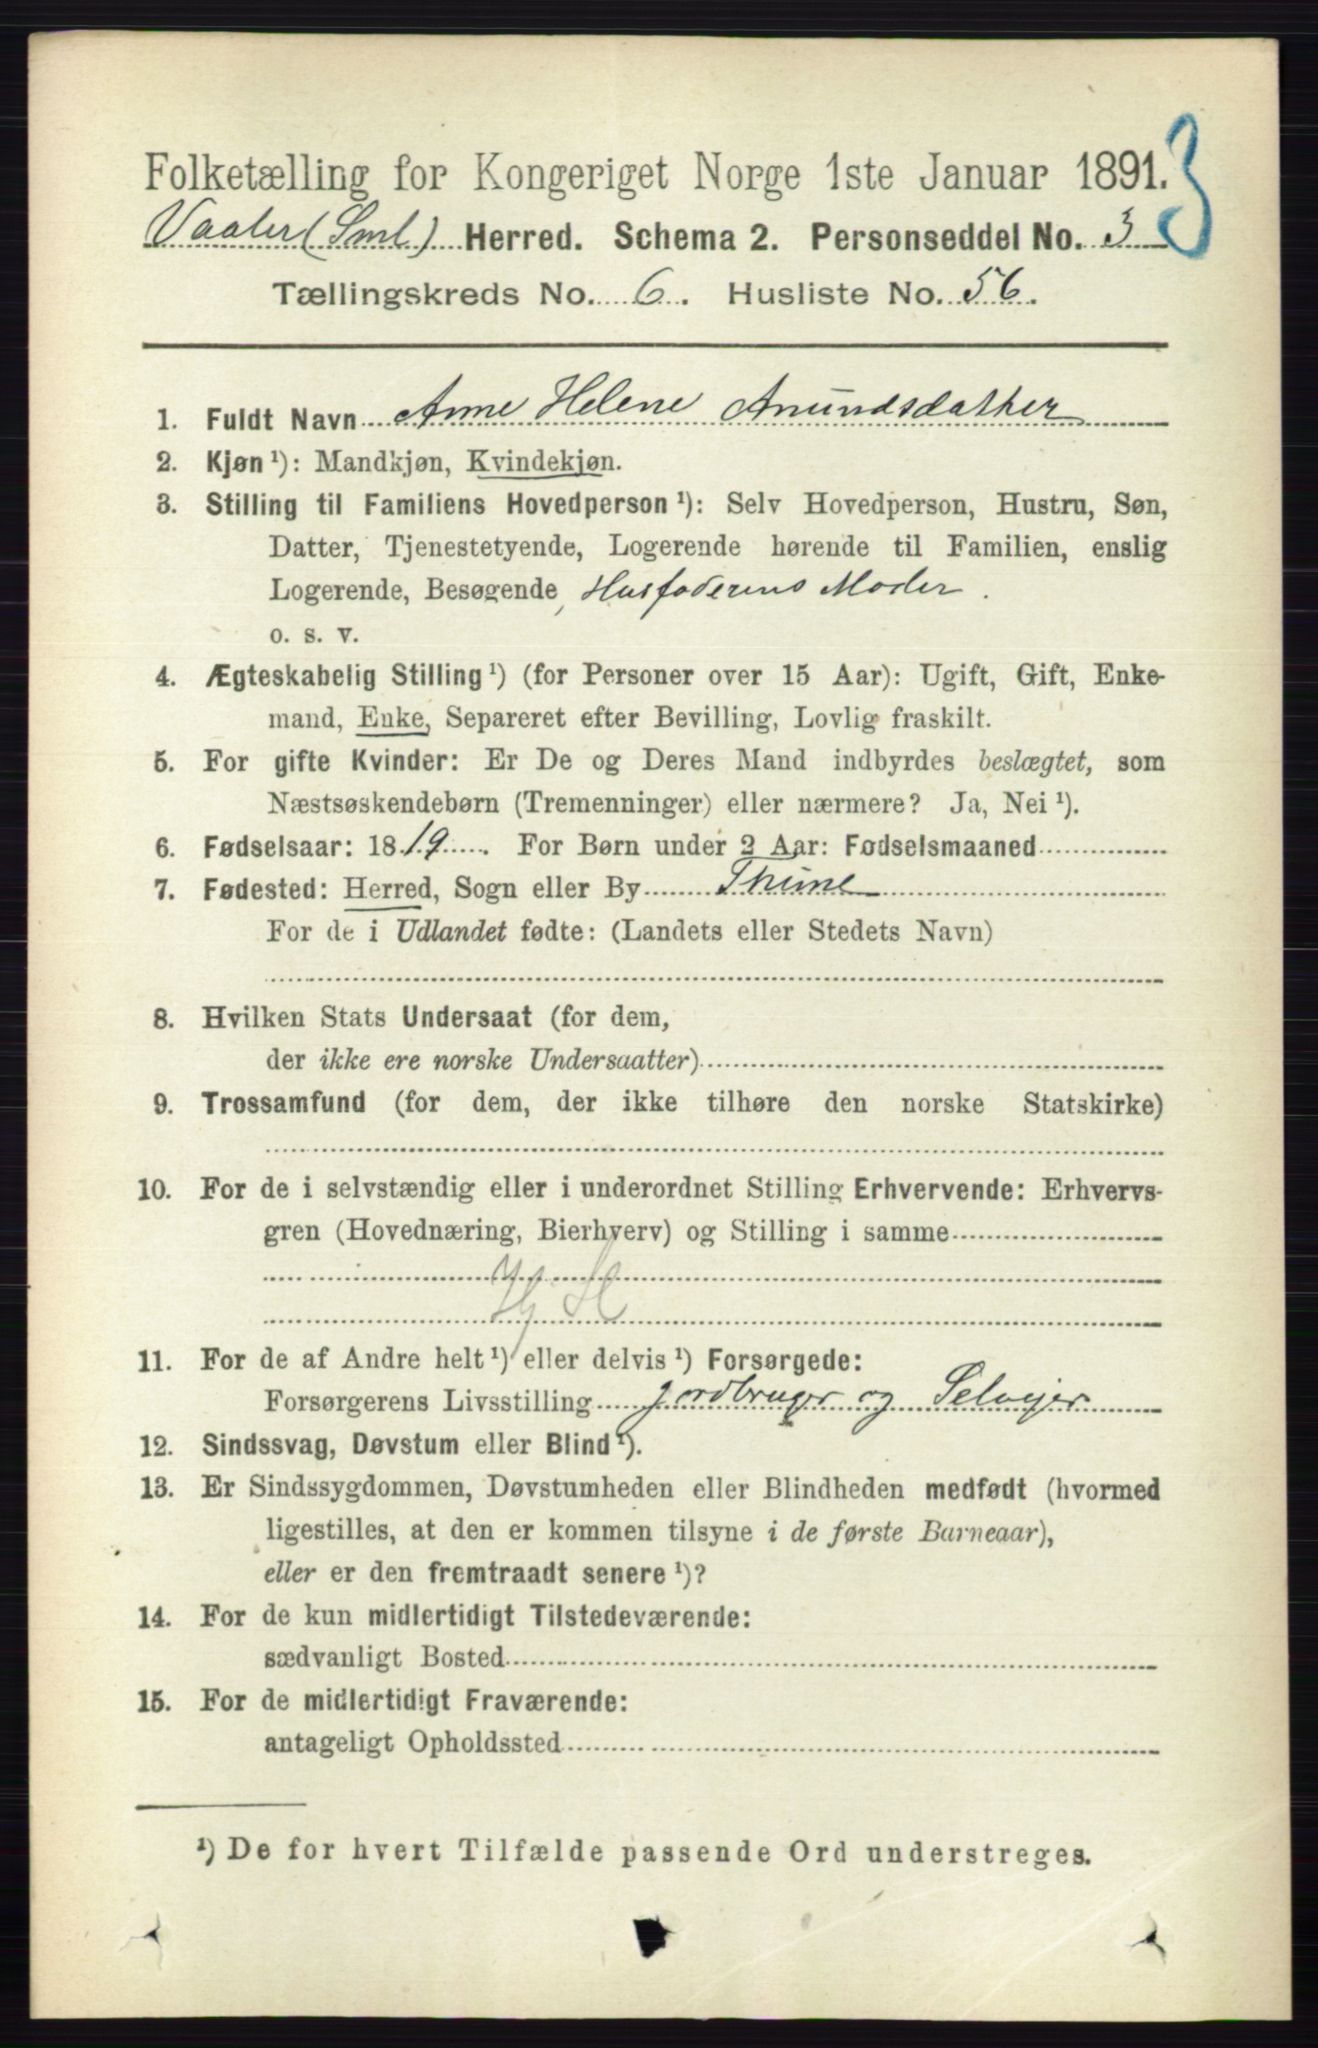 Folketælling for Kongeriget Norge 1ste Januar 1891. 3
Vaaler (Sml.) Herred. Schema 2. Personseddel No. 3
Tællingskreds No. 6. Husliste No. 56.
1. Fuldt Navn Anne Helene Amundsdatter
2. Kjøn ¹): Mandkjøn, Kvindekjøn.
3. Stilling til Familiens Hovedperson ¹): Selv Hovedperson, Hustru, Søn,
Datter, Tjenestetyende, Logerende hørende til Familien, enslig
Logerende, Besøgende, Husfaderens Moder.
o. s. v.
4. Ægteskabelig Stilling ¹) (for Personer over 15 Aar): Ugift, Gift, Enke-
mand, Enke, Separeret efter Bevilling, Lovlig fraskilt.
5. For gifte Kvinder: Er De og Deres Mand indbyrdes beslægtet, som
Næstsøskendebørn (Tremenninger) eller nærmere? Ja, Nei ¹).
6. Fødselsaar: 1819. For Børn under 2 Aar: Fødselsmaaned
7. Fødested: Herred, Sogn eller By Thune
For de i Udlandet fødte: (Landets eller Stedets Navn)
8. Hvilken Stats Undersaat (for dem,
der ikke ere norske Undersaatter)
9. Trossamfund (for dem, der ikke tilhøre den norske Statskirke)
10. For de i selvstændig eller i underordnet Stilling Erhvervende: Erhvervs-
gren (Hovednæring, Bierhverv) og Stilling i samme
11. For de af Andre helt ¹) eller delvis ¹) Forsørgede:
Forsørgerens Livsstilling Jordbruger og Selvejer
12. Sindssvag, Døvstum eller Blind ¹).
13. Er Sindssygdommen, Døvstumheden eller Blindheden medfødt (hvormed
ligestilles, at den er kommen tilsyne i de første Barneaar),
eller er den fremtraadt senere ¹)?
14. For de kun midlertidigt Tilstedeværende:
sædvanligt Bosted
15. For de midlertidigt Fraværende:
antageligt Opholdssted
¹) De for hvert Tilfælde passende Ord understreges.